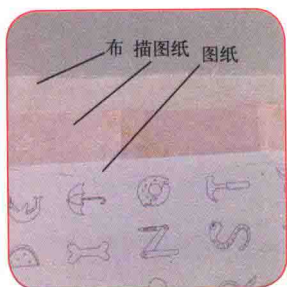 布 描图纸 图纸